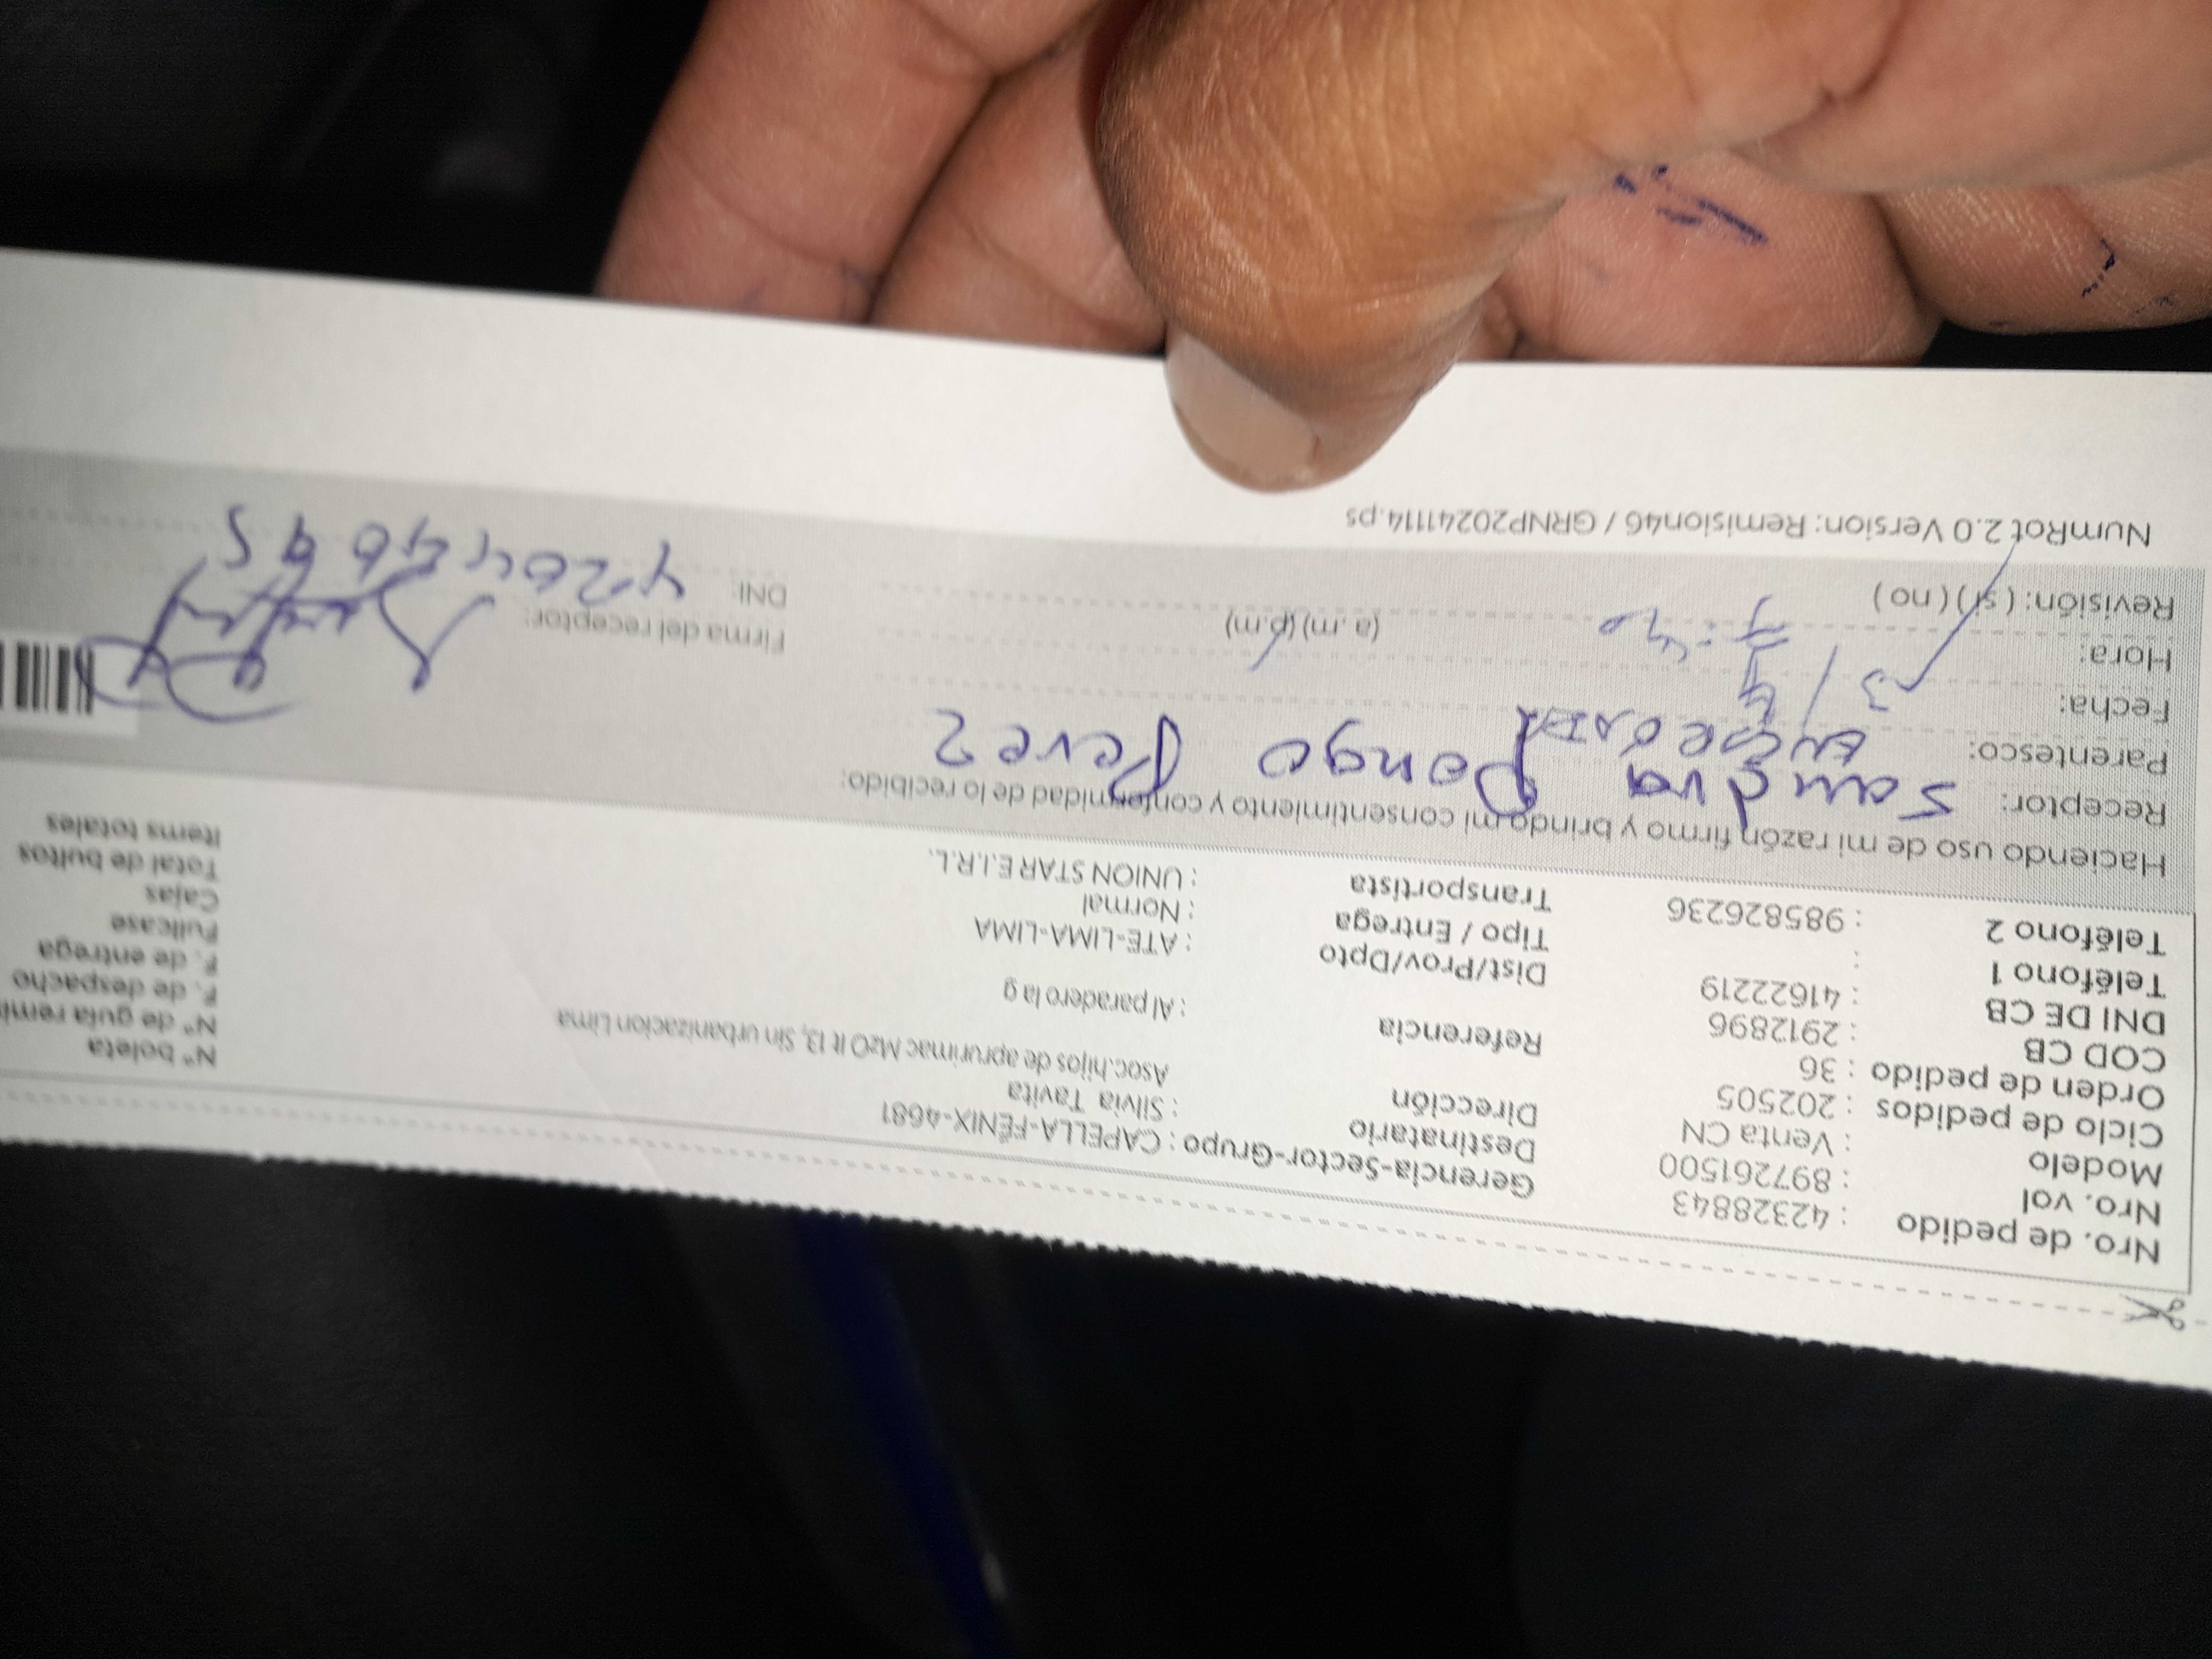 Nro. de pedido : 42328843
Nro. vol : 897261500
Modelo : Venta CN
Ciclo de pedidos : 202505
Orden de pedido : 36
COD CB : 2912896
DNI DE CB : 41622219
Teléfono 1 :
Teléfono 2 : 985826236
Gerencia-Sector-Grupo : CAPELLA-FÉNIX-4681
Destinatario : Silvia Tavita
Dirección Asoc.hijos de aprurimac MzO lt 13, Sin urbanizacion Lima
Referencia : Al paradero la g
Dist/Prov/Dpto : ATE-LIMA-LIMA
Tipo / Entrega : Normal
Transportista : UNION STAR E.I.R.L.
N° boleta
N° de guía remi
F. de despacho
F. de entrega
Fullcase
Cajas
Total de bultos
Items totales
Haciendo uso de mi razón firmo y brindo mi consentimiento y conformidad de lo recibido:
Receptor: Sandra Pongo Perez
Parentesco:
Fecha: 3/4
Hora: 7:40 (a.m) (p.m)
Revisión: (si) (no)
Firma del receptor:
DNI:
NumRot 2.0 Version: Remision46 / GRNP20241114.ps